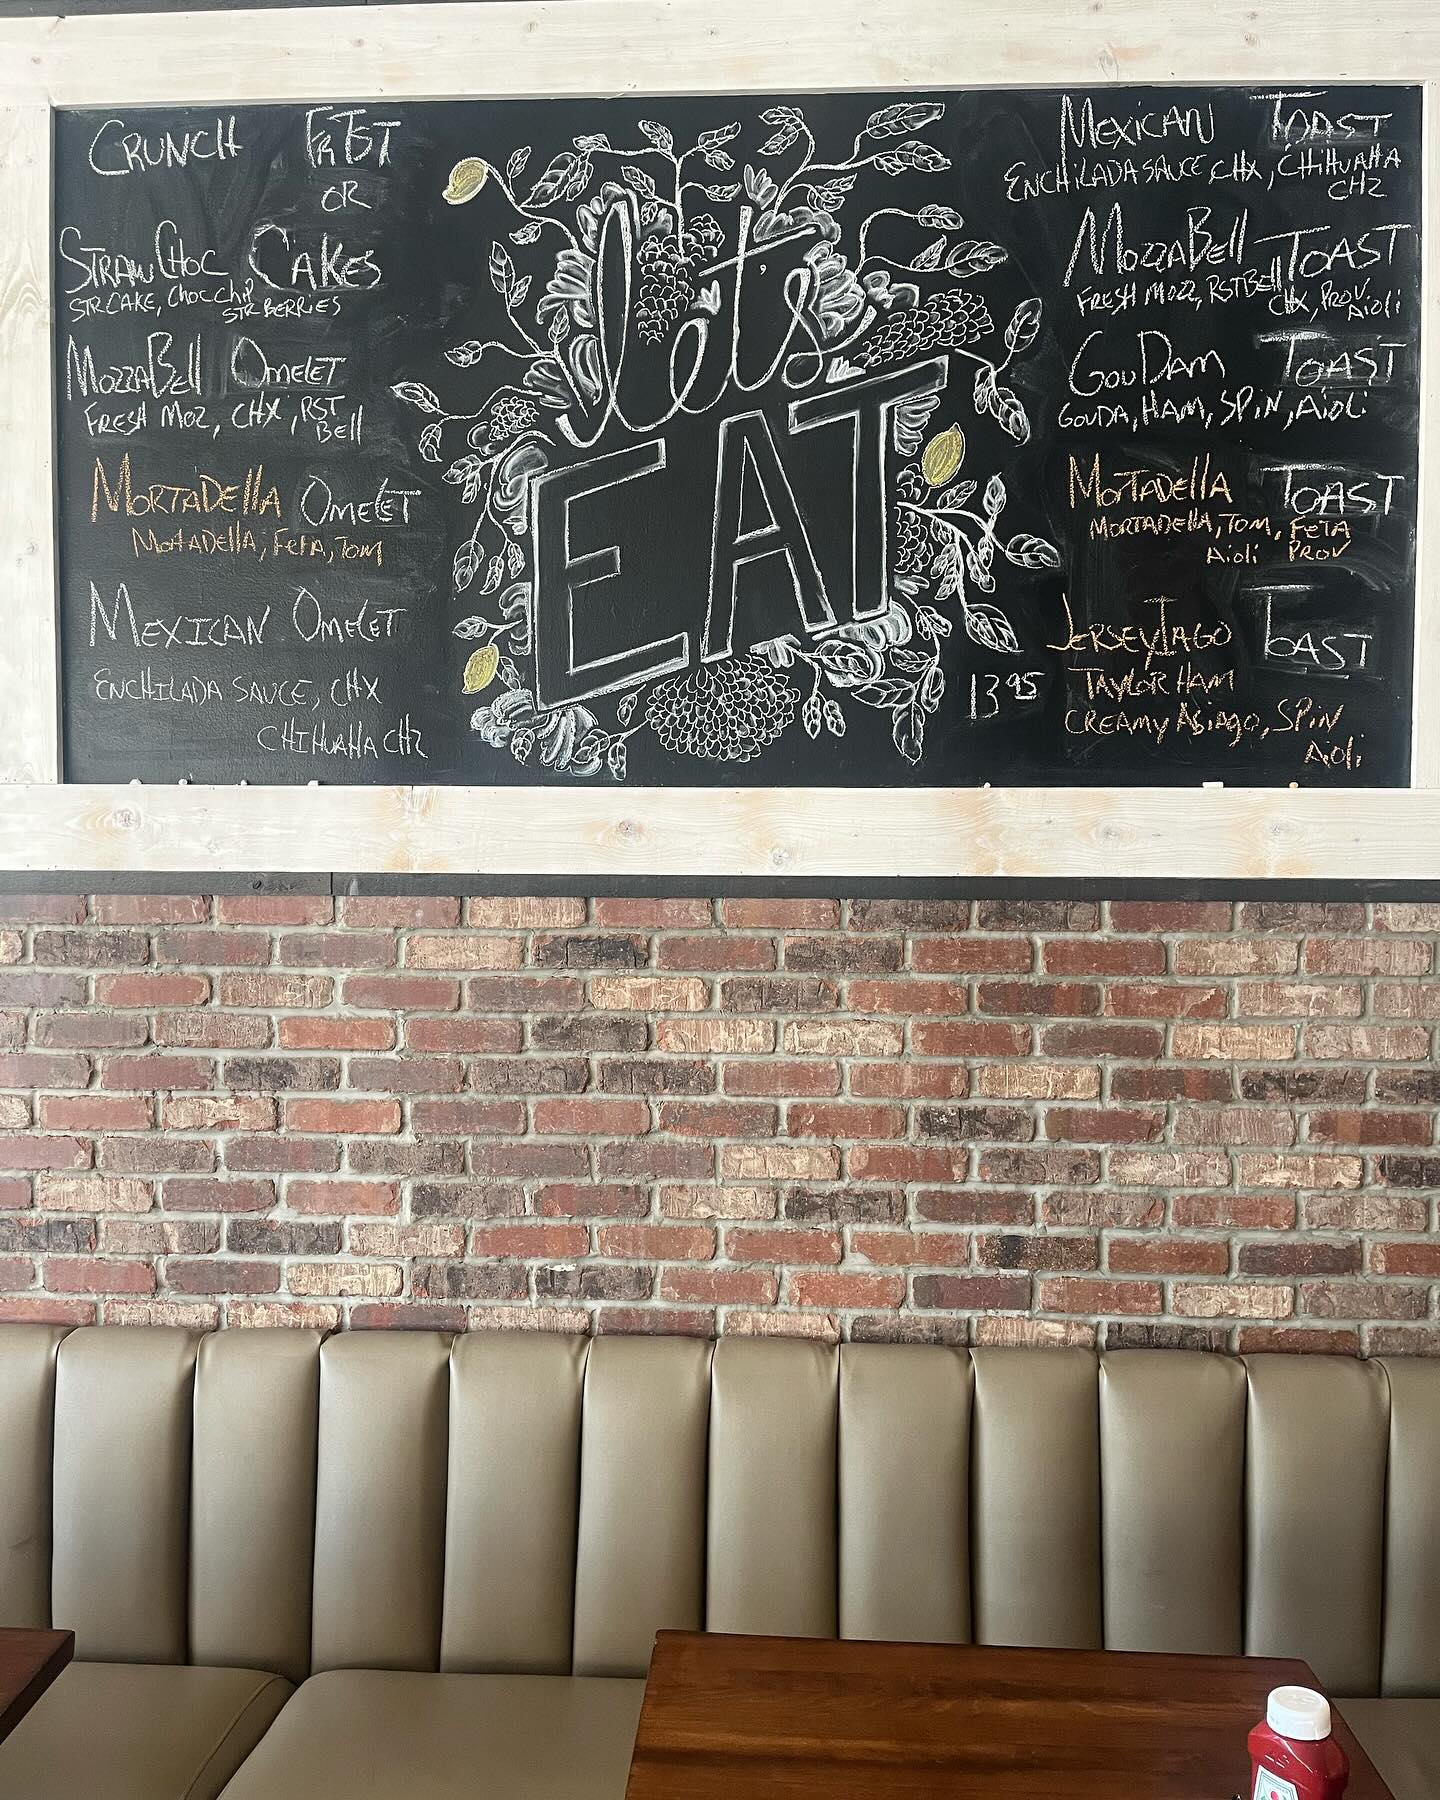 CRUNCH FRTST
OR
STRAW CHOC CAKES
STR CAKE, CHOC CHIP
STR BERRIES
MOZZABELL OMELET
FRESH MOZ, CHX, RST
BELL
MORTADELLA OMELET
MORTADELLA, FETA, TOM
MEXICAN OMELET
ENCHILADA SAUCE, CHX
CHIHUAHA CHZ
let's
EAT
13.95
MEXICAN TOAST
ENCHILADA SAUCE, CHX, CHIHUAHA
CHZ
MOZZABELL TOAST
FRESH MOZZ, RST BELL
CHX, PROV
AIOLI
GOUDAM TOAST
GOUDA, HAM, SPIN, AIOLI
MORTADELLA TOAST
MORTADELLA, TOM, FETA
AIOLI PROV
JERSEYIAGO TOAST
TAYLOR HAM
CREAMY ASIAGO, SPIN
AIOLI